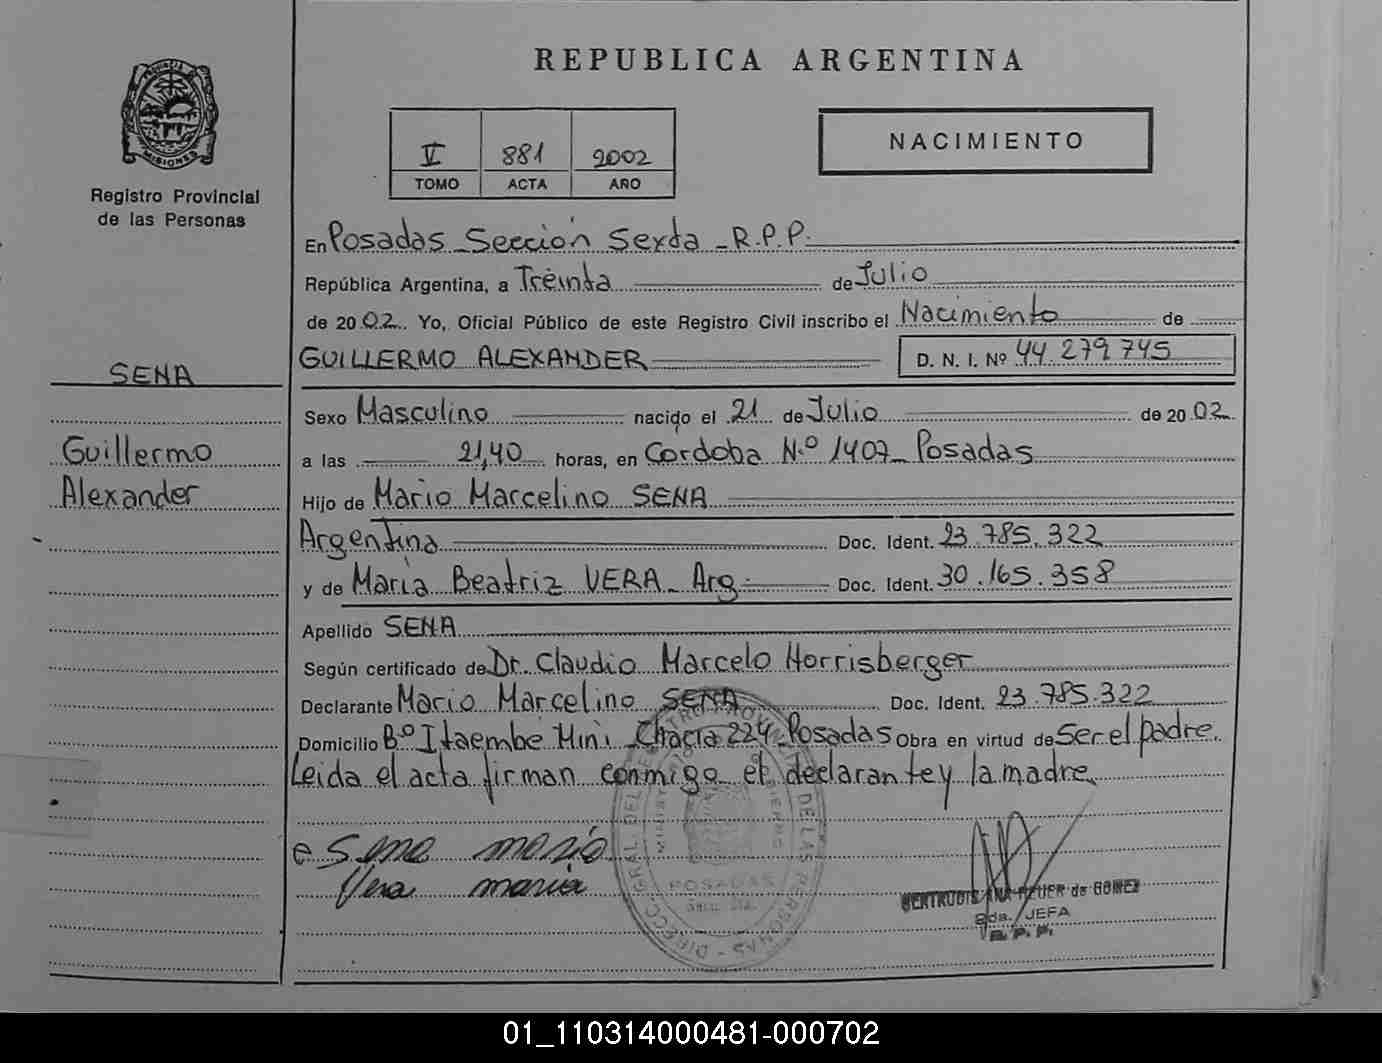 REPUBLICA ARGENTINA
PROVINCIA DE
MISIONES
Registro Provincial
de las Personas
V 881 2002
TOMO ACTA AÑO
NACIMIENTO
SENA
Guillermo
Alexander
En Posadas Sección Sexta - R.P.P.
República Argentina, a Treinta de Julio
de 2002. Yo, Oficial Público de este Registro Civil inscribo el Nacimiento de
GUILLERMO ALEXANDER D. N. I. Nº 44.279.745
Sexo Masculino nacido el 21 de Julio de 2002
a las 21,40 horas, en Cordoba N.º 1407 - Posadas
Hijo de Mario Marcelino SENA
Argentina Doc. Ident. 23.785.322
y de María Beatriz VERA - Arg. Doc. Ident. 30.165.358
Apellido SENA
Según certificado de Dr. Claudio Marcelo Horrisberger
Declarante Mario Marcelino SENA Doc. Ident. 23.785.322
Domicilio Bº Itaembe Mini Chacra 224 Posadas Obra en virtud de Ser el padre.
Leida el acta firman conmigo el declarante y la madre.
Sena mario
Vera maria
POSADAS
GERTRUDIS ANA de GOMEZ
2da. JEFA
R. P. P.
01_110314000481-000702